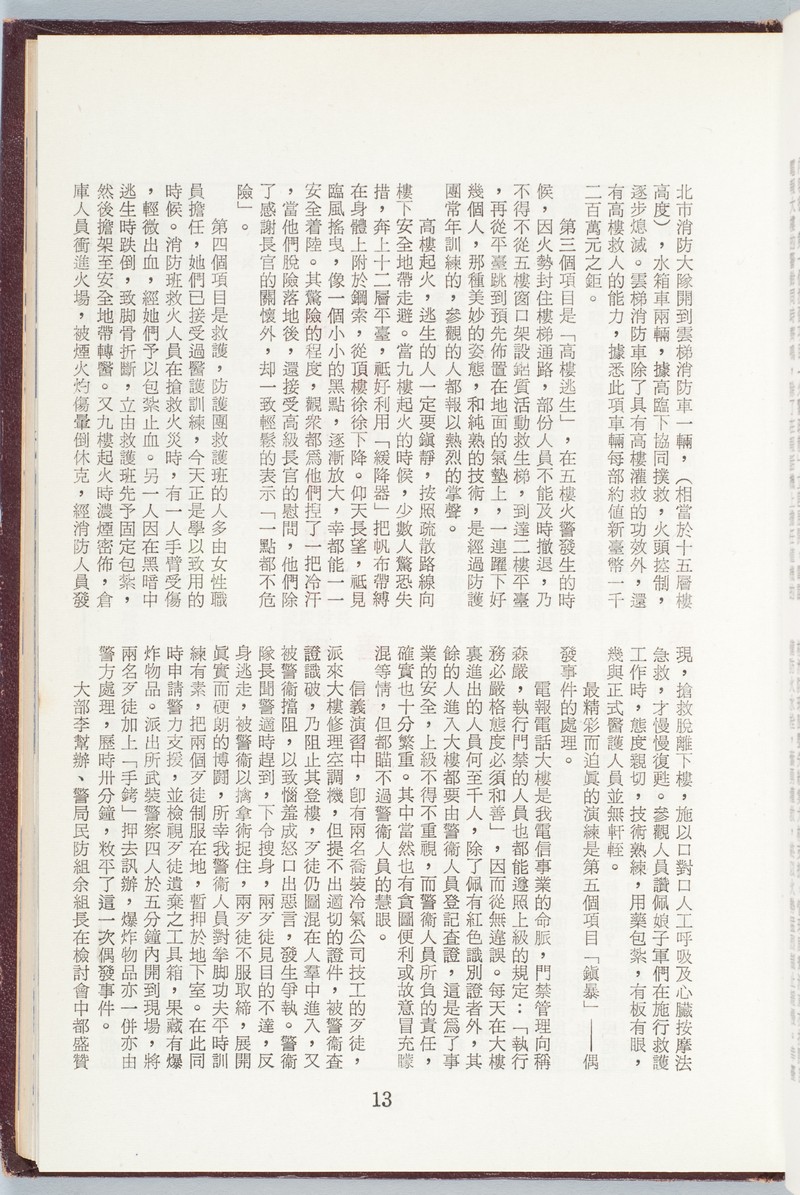 北市消防大隊開到雲梯消防車一輛，（相當於十五層樓
高度），水箱車兩輛，據高臨下協同撲救，火頭控制，
逐步熄滅。雲梯消防車除了具有高樓灌救的功效外，還
有高樓救人的能力，據悉此項車輛每部約値新臺幣一千
二百萬元之鉅。
第三個項目是「高樓逃生」，在五樓火警發生的時
候，因火勢封住樓梯通路，部份人員不能及時撤退，乃
不得不從五樓窗口架設鋁質活動救生梯，到達二樓平臺
，再從平臺跳到預先佈置在地面的氣墊上，一連躍下好
幾個人，那種美妙的姿態，和純熟的技術，是經過防護
團常年訓練的，參觀的人都報以熱烈的掌聲。
高樓起火，逃生的人一定要鎭靜，按照疏散路線向
樓下安全地帶走避。當九樓起火的時候，少數人驚恐失
措，奔上十二層平臺，祗好利用「緩降器」把帆布帶縛
在身體上附於鋼索，從頂樓徐徐下降。仰天長望，祗見
臨風搖曳，像一個小小的黑點，逐漸放大，幸都能一一
安全着陸。其驚險的程度，觀衆都爲他們揑了一把冷汗
，當他們脫險落地後，還接受高級長官的慰問，他們除
了感謝長官的關懷外，却一致輕鬆的表示「一點都不危
險」。
第四個項目是救護，防護團救護班的人多由女性職
員擔任，她們已接受過醫護訓練，今天正是學以致用的
時候。消防班救火人員在搶救火災時，有一人手臂受傷
，輕微出血，經她們予以包紮止血。另一人因在黑暗中
逃生時跌倒，致脚骨折斷，立由救護班先予固定包紮，
然後擔架至安全地帶轉醫。又九樓起火時濃煙密佈，倉
庫人員衝進火場，被煙火灼傷暈倒休克，經消防人員發
現，搶救脫離下樓，施以口對口人工呼吸及心臟按摩法
急救，才慢慢復甦。參觀人員讚佩娘子軍們在施行救護
工作時，態度親切，技術熟練，用藥包紮，有板有眼，
幾與正式醫護人員並無軒輊。
最精彩而迫眞的演練是第五個項目「鎭暴」——偶
發事件的處理。
電報電話大樓是我電信事業的命脈，門禁管理向稱
森嚴，執行門禁的人員也都能遵照上級的規定：「執行
務必嚴格態度必須和善」，因而從無違誤。每天在大樓
裏進出的人員何至千人，除了佩有紅色識別證者外，其
餘的人進入大樓都要由警衞人員登記查證，這是爲了事
業的安全，上級不得不重視，而警衞人員所負的責任，
確實也十分繁重。其中當然也有貪圖便利或故意冒充矇
混等情，但都瞄不過警衞人員的慧眼。
信義演習中，卽有兩名喬裝冷氣公司技工的歹徒，
派來大樓修理空調機，但提不出適切的證件，被警衞查
證識破，乃阻止其登樓，歹徒仍圖混在人羣中進入，又
被警衞擋阻，以致惱羞成怒口出惡言，發生爭執。警衞
隊長聞警適時趕到，下令搜身，兩歹徒見目的不達，反
身逃走，被警衞以擒拿術捉住，兩歹徒不服取締，展開
眞實而硬朗的博鬪，所幸我警衞人員對拳脚功夫平時訓
練有素，把兩個歹徒制服在地，暫押於地下室。在此同
時申請警力支援，並檢視歹徒遺棄之工具箱，果藏有爆
炸物品。派出所武裝警察四人於五分鐘內開到現場，將
兩名歹徒加上「手銬」押去訊辦，爆炸物品亦一併亦由
警方處理，歷時卅分鐘，敉平了這一次偶發事件。
大部李幫辦、警局民防組余組長在檢討會中都盛贊
13